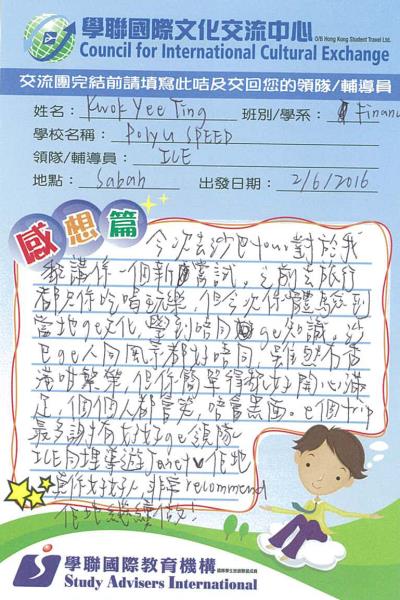 學聯國際文化交流中心 O/B Hong Kong Student Travel Ltd.
Council for International Cultural Exchange
交流團完結前請填寫此咭及交回您的領隊/輔導員
姓名： Kwok Yee Ting 班別/學系： Finance
學校名稱： PolyU SPEED
領隊/輔導員： ICE
地點： Sabah 出發日期： 2/6/2016
感想篇
今次去沙巴tour對於我
黎講係一個新嘗試。之前去旅行
都只係吃喝玩樂，但今次係體驗到
當地ge文化，學到唔同ge知識。沙
巴ge人同風景都好唔同，雖然冇香
港咁繁華，但係簡單得黎好開心滿
足，個個人都會笑，唔會黑面。e個trip
最多謝有好好ge領隊
ICE同埋導遊Janet，佢地
好好人，非常recommend
佢地繼續做！
學聯國際教育機構
Study Advisers International